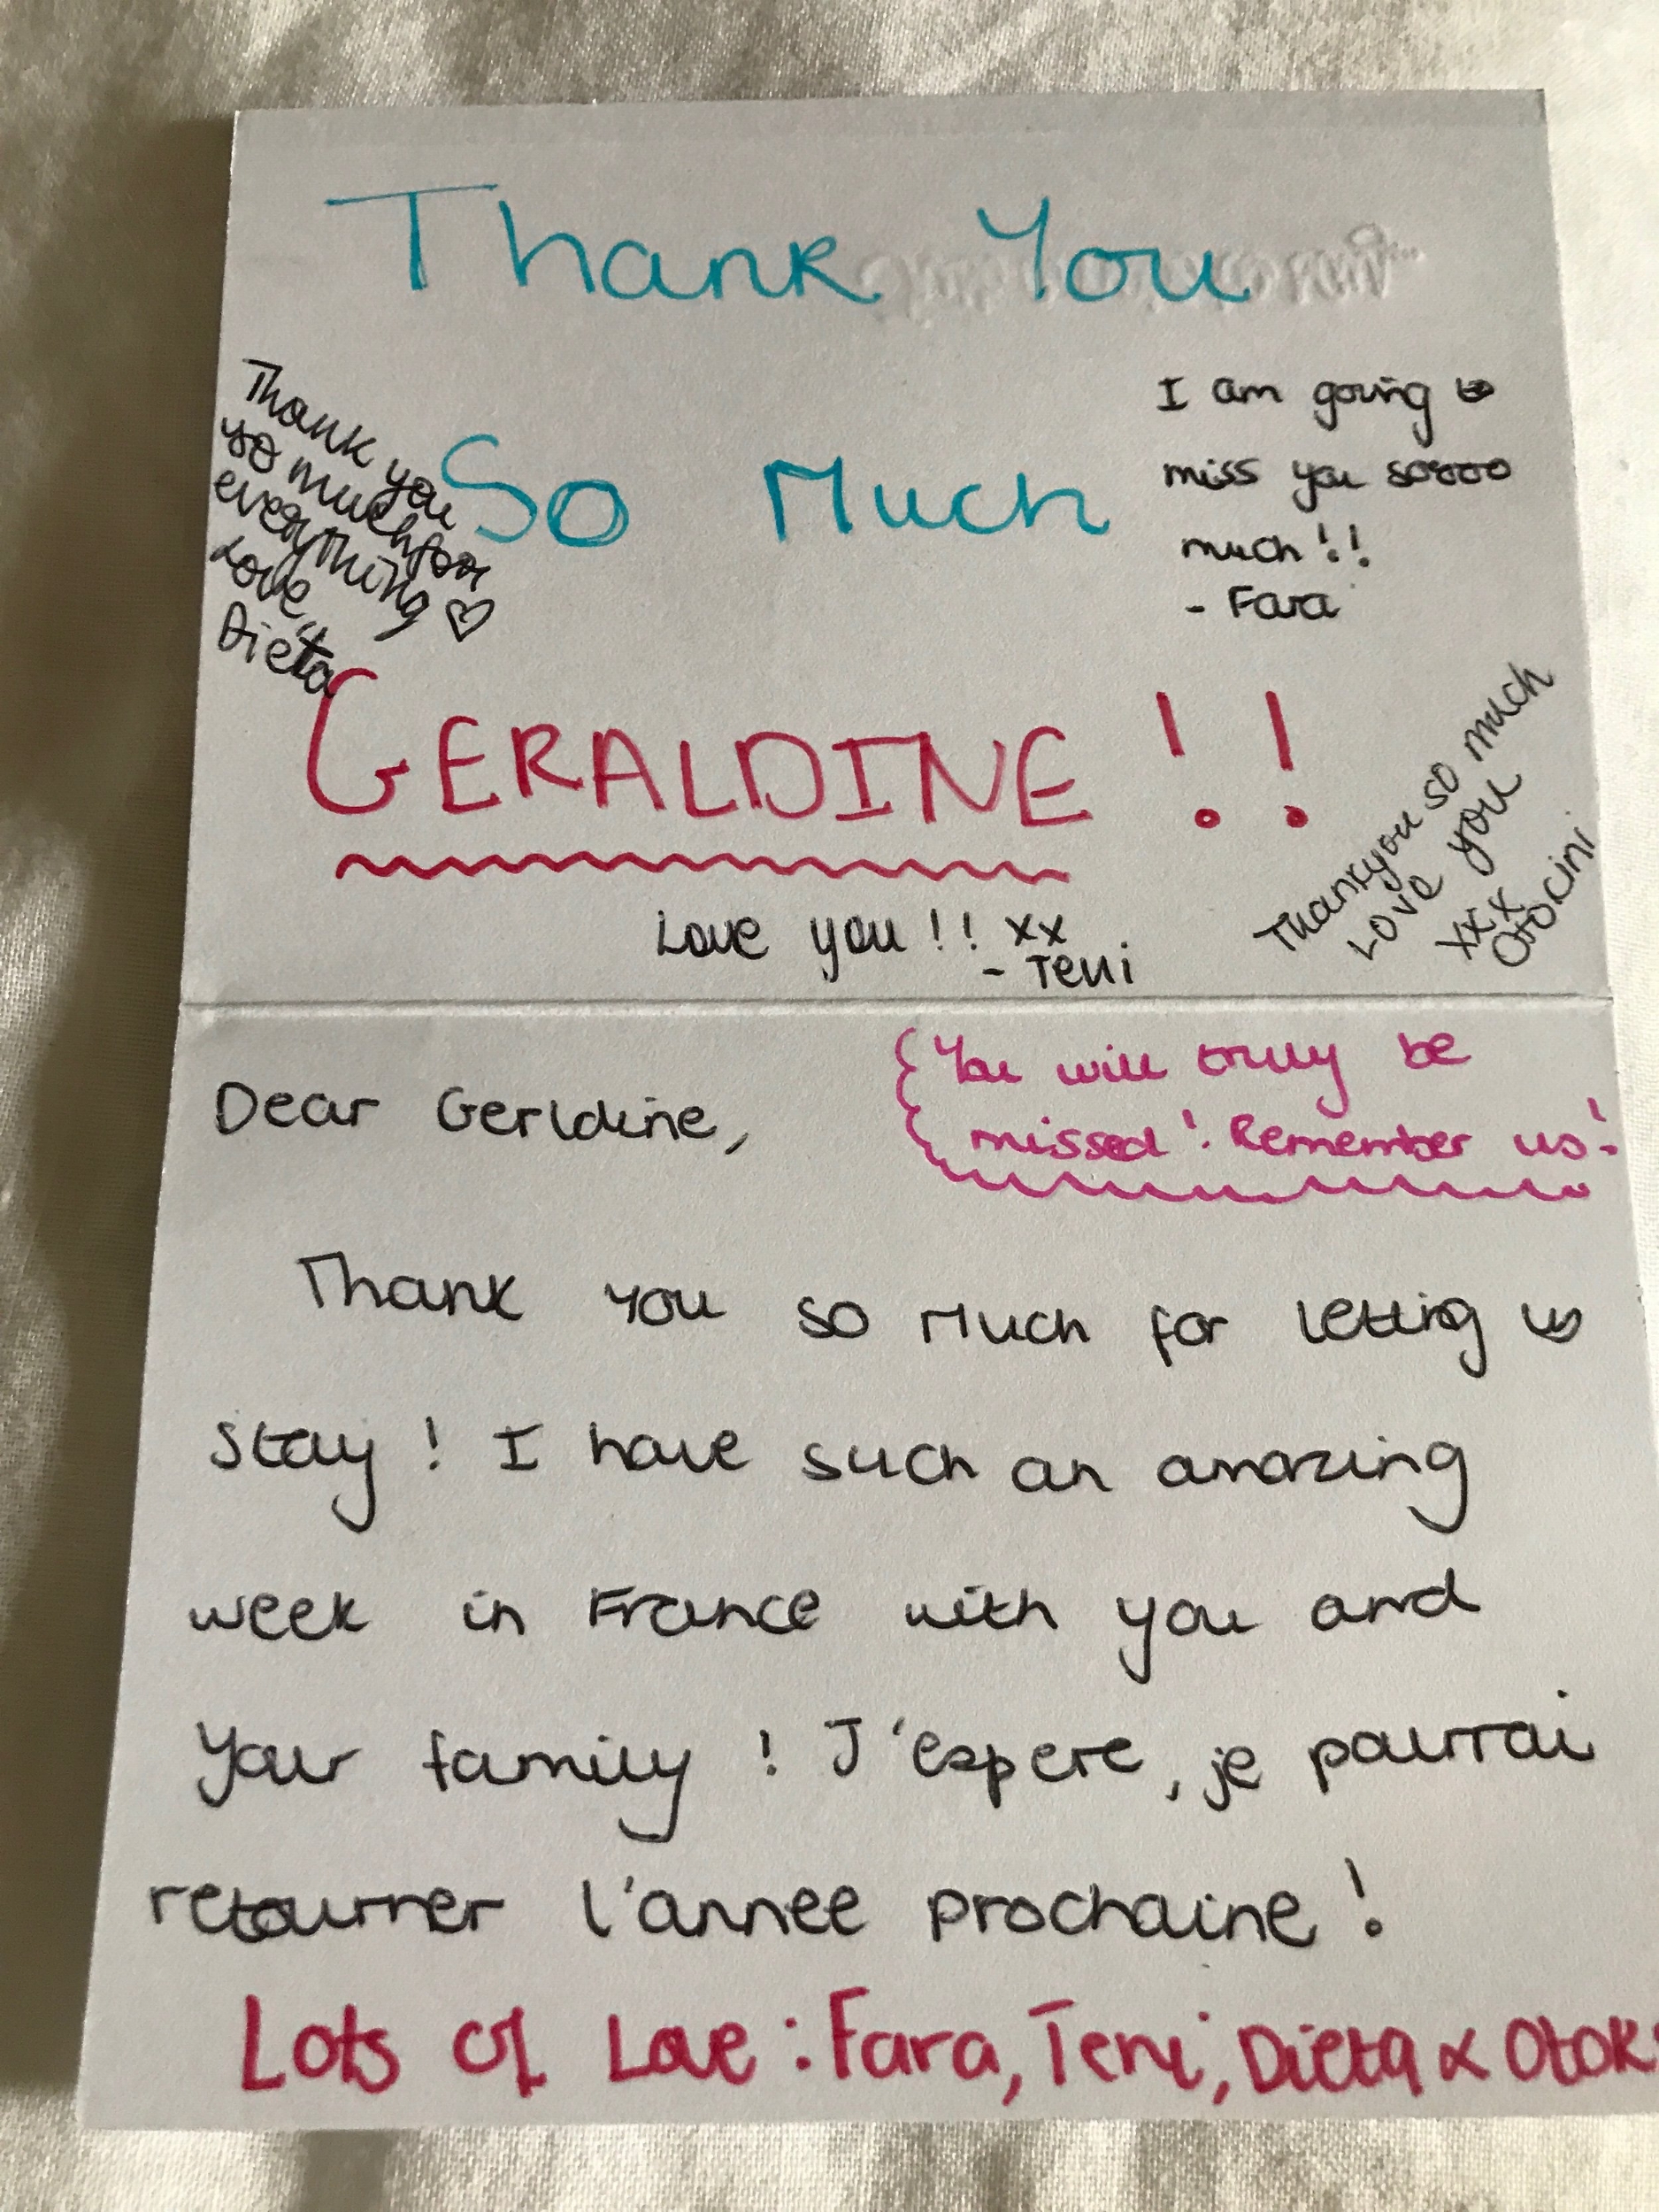 Thank You
Thank you
so much for
everything ♡
Love,
Dieta
So Much
I am going to
miss you soooo
much!!
- Fara
GERALDINE!!
Thankyou so much
Love you
xxx
Otokini
Love you!! xx
- Teni
Dear Gerldine,
You will truly be
missed! Remember us!
Thank you so Much for letting us
stay! I have such an amazing
week in France with you and
your family! J'espere, je pourrai
retourner l'annee prochaine!
Lots of Love: Fara, Teni, Dieta & Otok